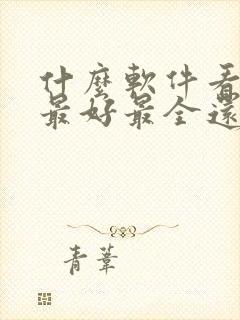 什麼軟件看
最好最全還
青葦